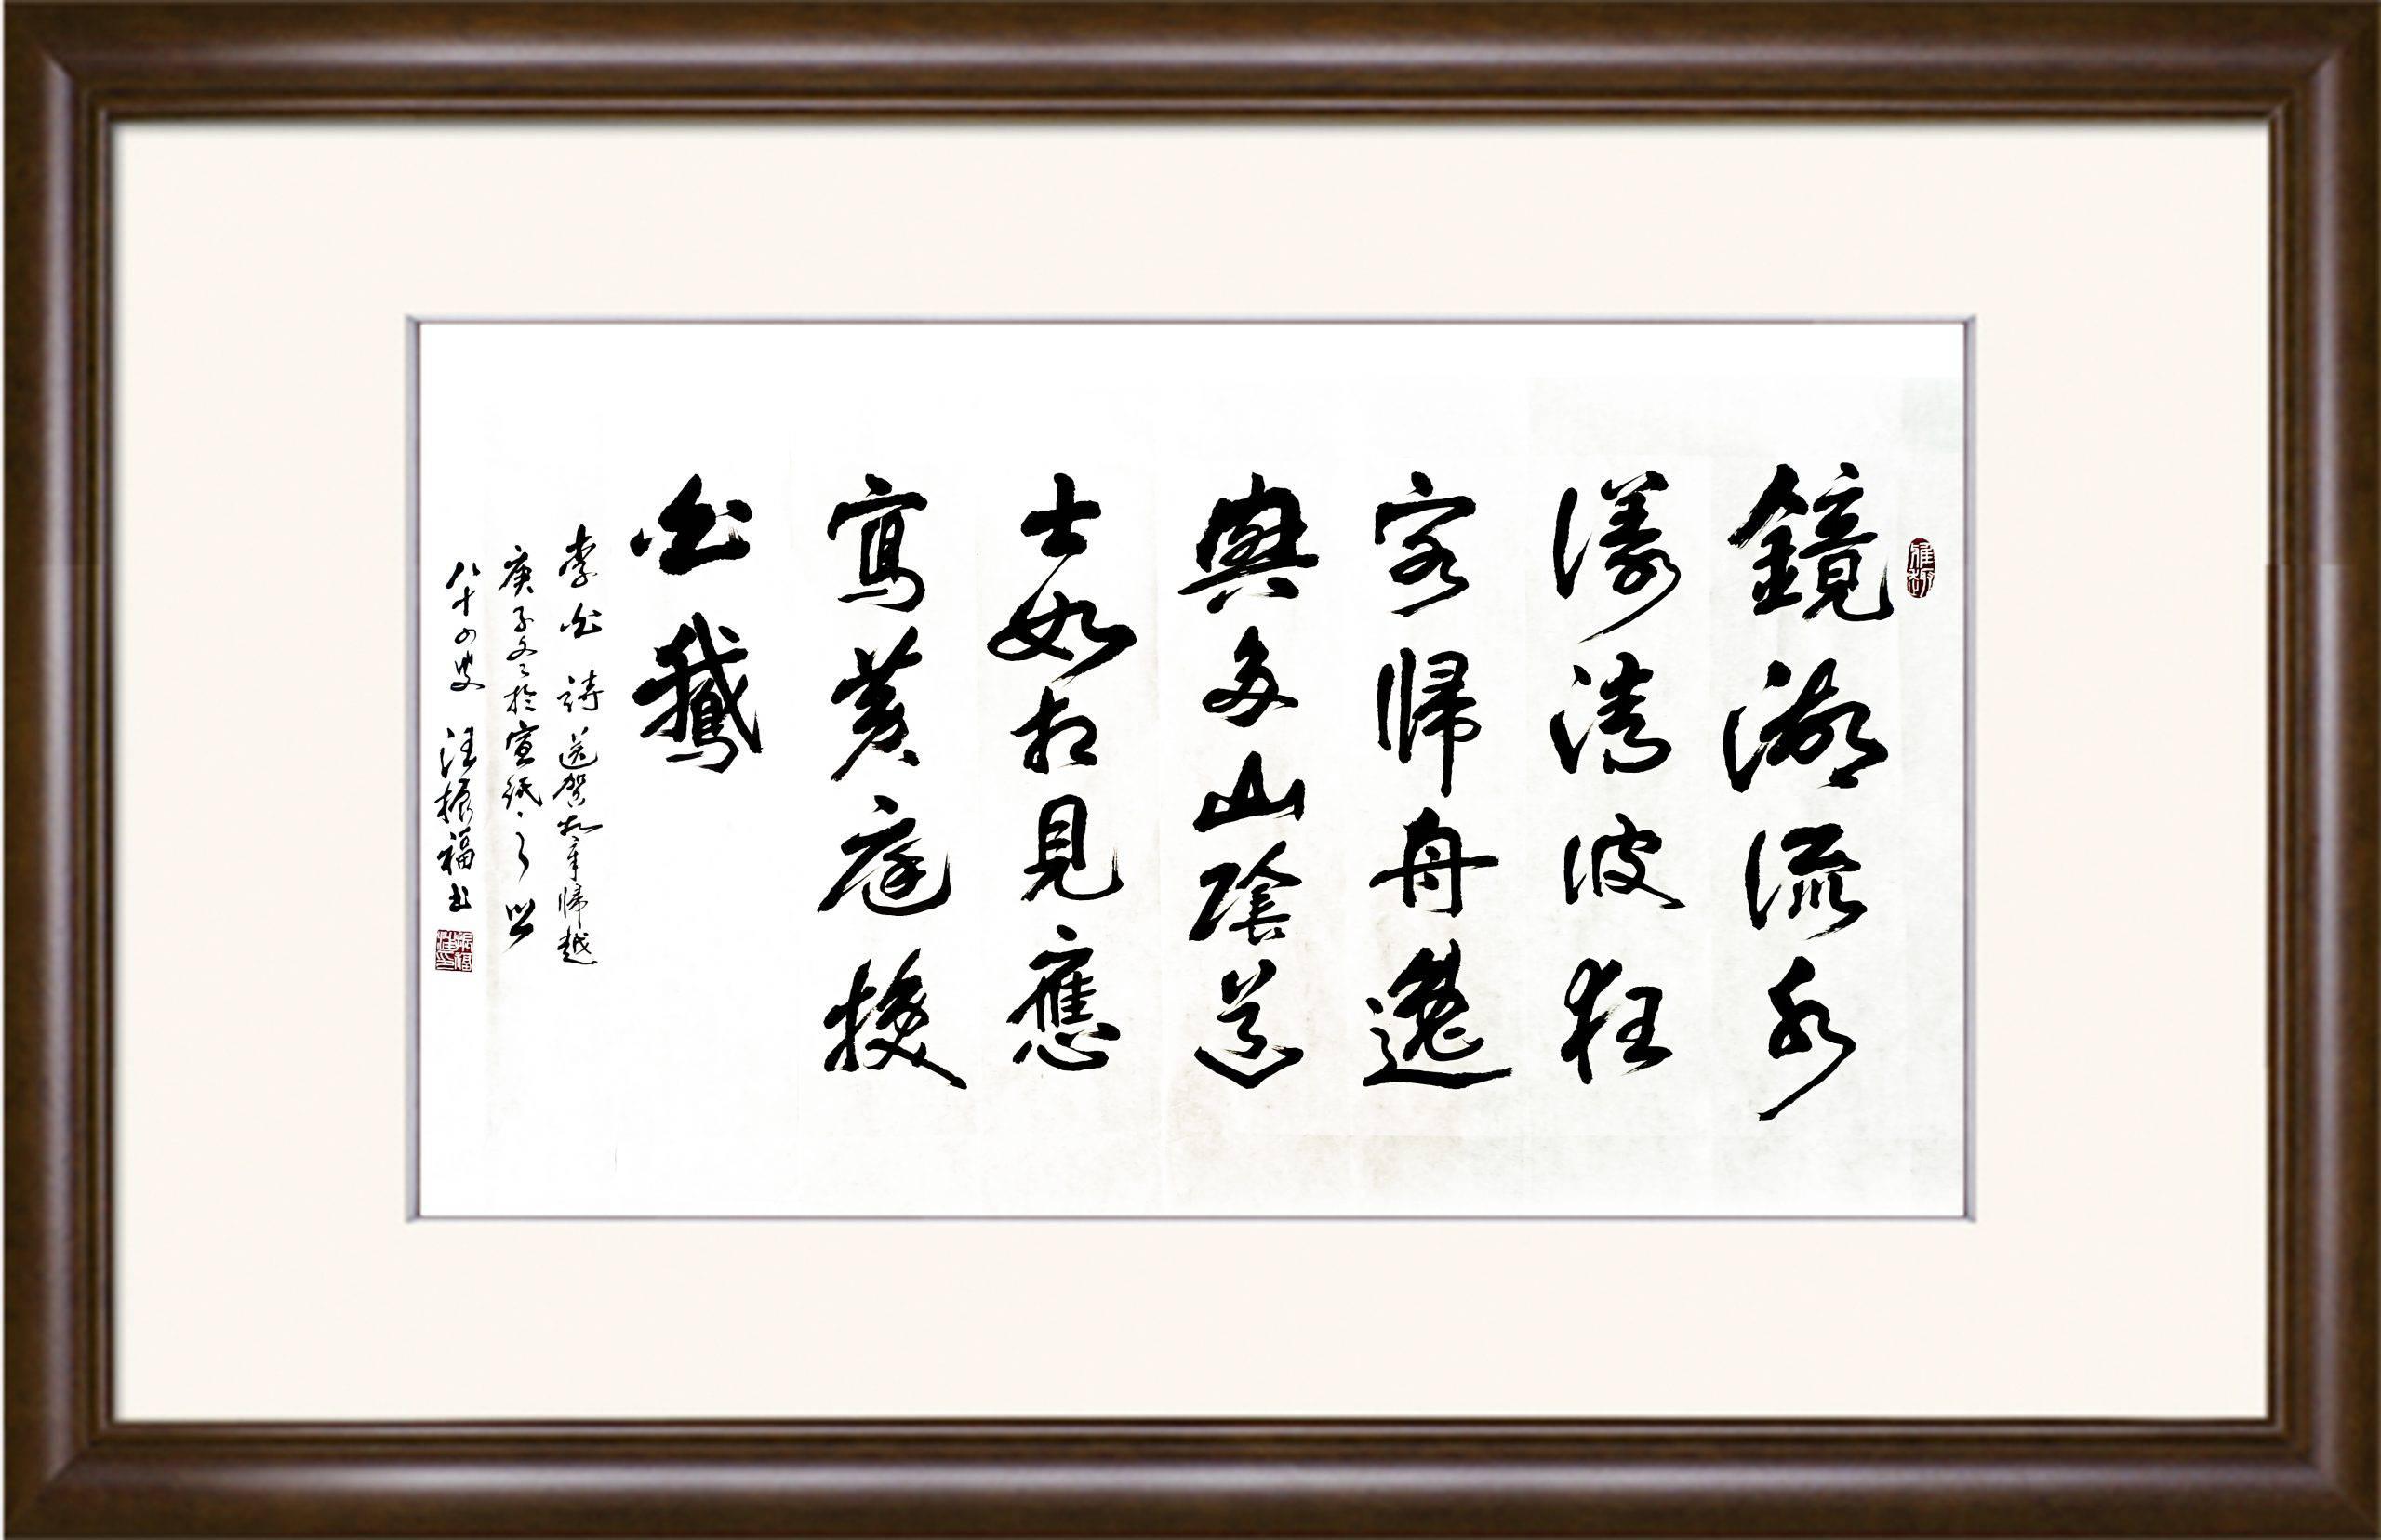 鏡湖流水
漾清波狂
客歸舟逸
興多山陰道
士如相見應
寫黃庭換
白鵝
李白 詩 送賀知章歸越
庚子冬於宣紙之
八十四叟 汪振福書